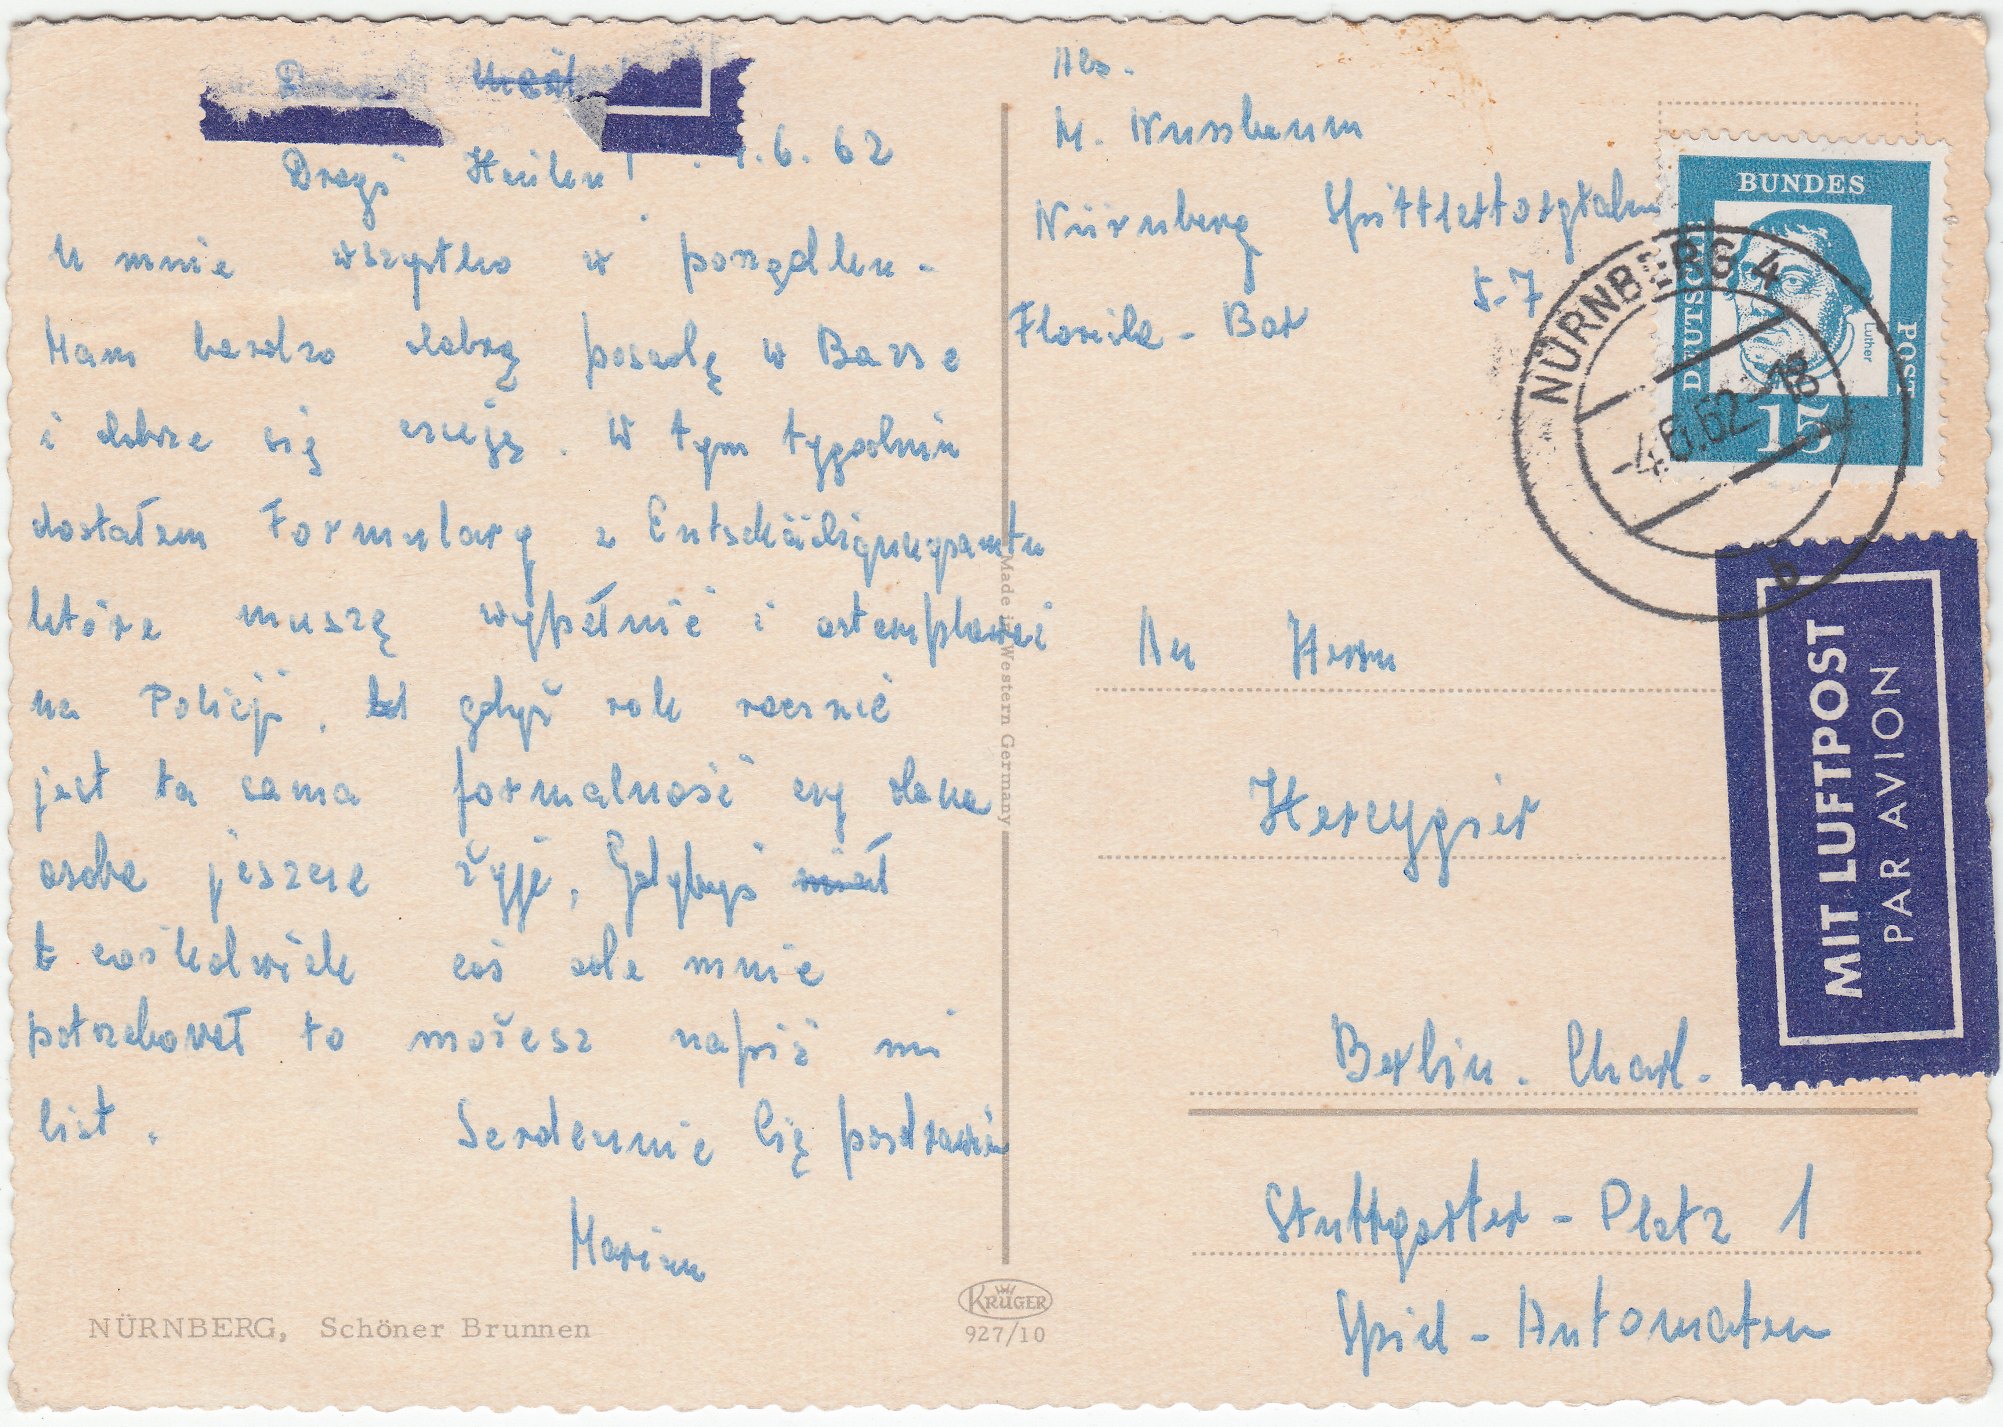 Drogi Heniku! 4.6.62
U mnie wszystko w porządku.
Mam bardzo dobrą posadę w Barze
i dobrze się czuję. W tym tygodniu
dostałem Formulary z Entschädigungsamtu
które muszę wypełnić i ostemplować
na Policji, gdyż rok rocznie
jest ta sama formalność czy dana
osoba jeszcze żyje. Gdybyś
cośkolwiek coś dla mnie
potrzebował to možesz napisź mi
list.
Serdecznie Cię pozdrawia
Marian
NÜRNBERG, Schöner Brunnen
KRÜGER
927/10
Made in Western Germany
Abs.
M. Nussbaum
Nürnberg
5-7
Florida - Bar
BUNDES
DEUTSCHE
POST
Luther
15
NÜRNBERG 4
-4.6.62-18
b
MIT LUFTPOST
PAR AVION
An Herrn
Hercygier
Berlin. Charl.
Stuttgarter - Platz 1
Spiel - Automaten